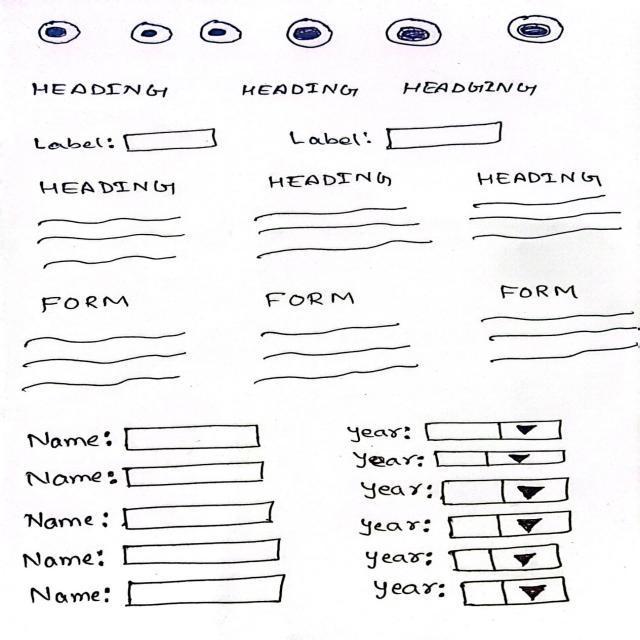 HEADING HEADING HEADGING
Label: Label:
HEADING HEADING HEADING
FORM FORM FORM
Name: Year:
Year:
Name: Year:
Name: Year:
Name: Year:
Name: Year: